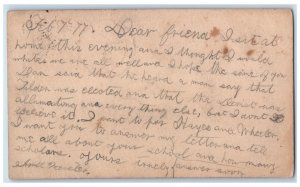 Feb 7 77. Dear friend I sit at
home this evening and I thought I would
write we are all well and I hope the same of you
Dan said that he heard a man say that
Tilden was elected and that the was
and every thing else, but I dont
believe it. I went for Hayes and Wheeler
I want you to answer my letter and tell
me all about your school and how many
scholars. yours truly answer soon